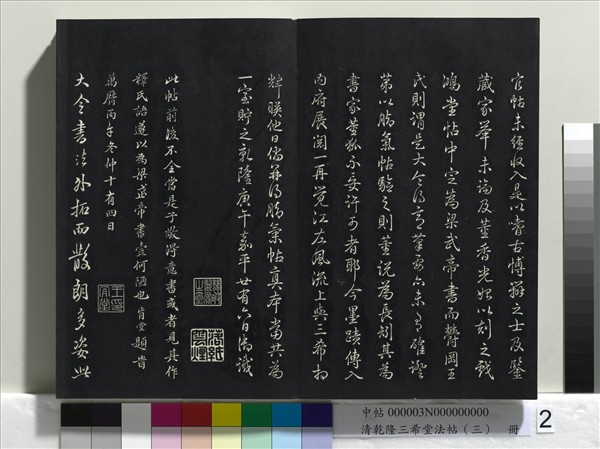 官帖未經收入是以考古博雅之士及鑒
藏家舉未論及董香光始以刻之戲
鴻堂帖中定為梁武帝書而鬱岡王
氏則謂是大令得意筆要亦未有確證
第以腦氣帖驗之則董說為長矧其為
書家董狐不妄許可者耶今墨蹟傳入
內府展閱一再覺江左風流上與三希相
輝映他日倘并得腦氣帖真本當共為
一室貯之乾隆庚午嘉平廿有六日御識
落紙雲煙
此帖前後不全當是子敬得意書或者見其作
釋氏語遂以為梁武帝書壹何陋也肯堂題時
萬曆丙午冬仲十有四日
大令書法外拓而散朗多姿此
中帖 000003N000000000
清乾隆三希堂法帖（三） 冊
2